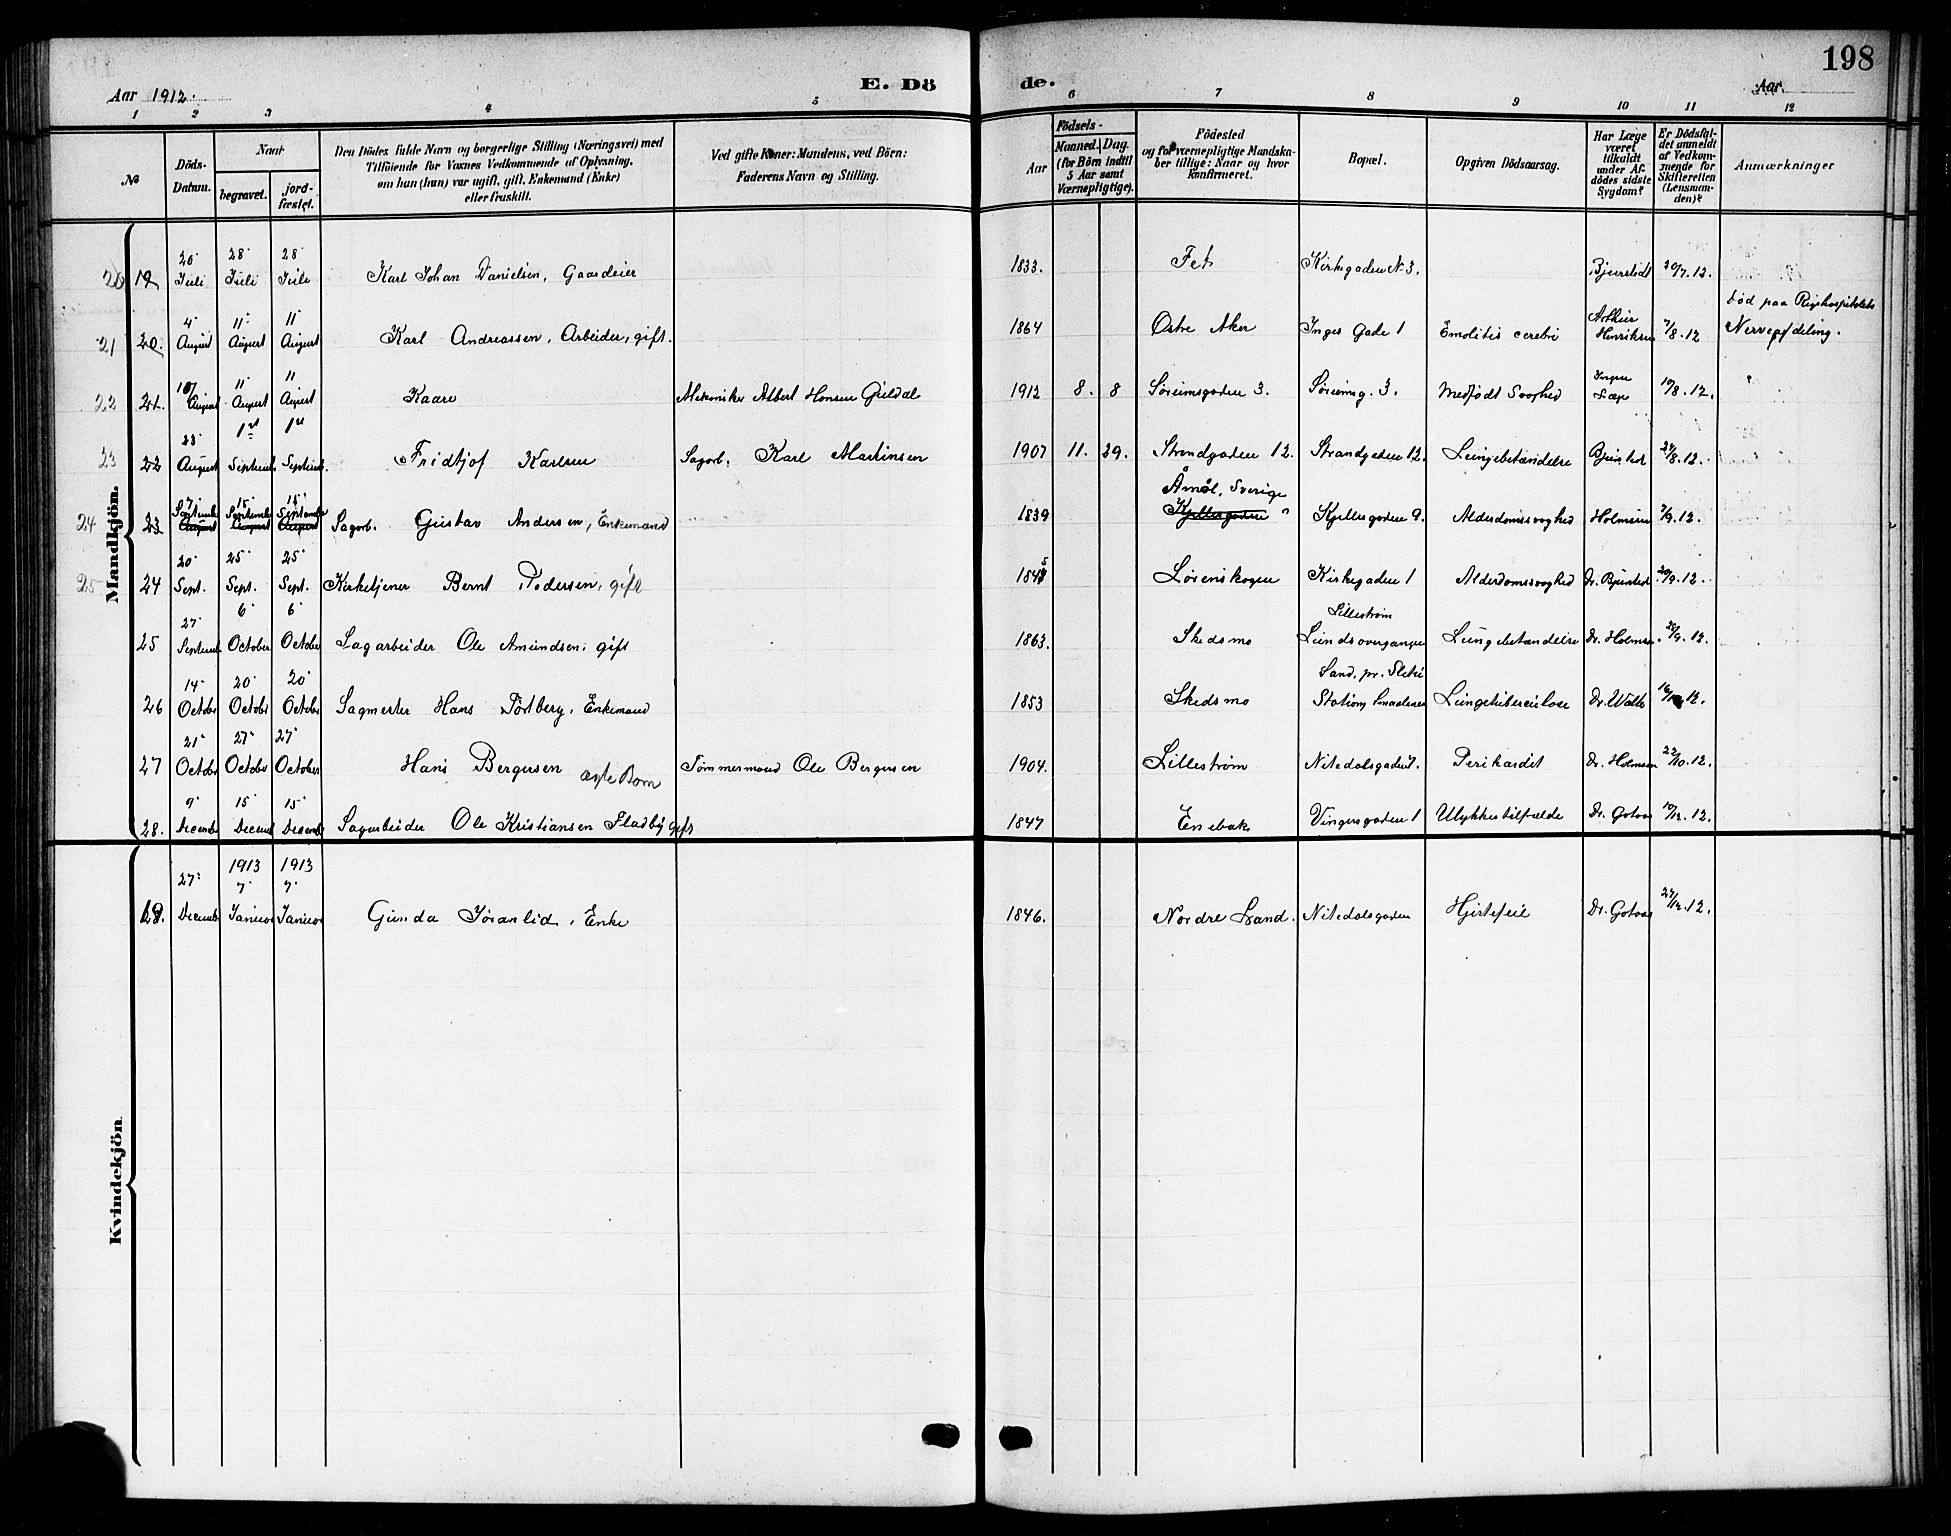 198
Aar 1912.
E. Dö de.
Aar
1 2 3 4 5 6 7 8 9 10 11 12
№
Döds-Datum.
Naar
begravet.
jord-fæstet.
Den Dödes fulde Navn og borgerlige Stilling (Næringsvei) med
Tilföiende for Voxnes Vedkommende af Oplysning,
om hun (han) var ugift, gift, Enkemand (Enke)
eller fraskilt.
Ved gifte Koner: Mandens, ved Börn:
Faderens Navn og Stilling.
Födsels-
Aar
Maaned. Dag.
(for Börn indtil
5 Aar samt
Værnepligtige).
Födested
og for værnepligtige Mandska-
ber tillige: Naar og hvor
konfirmeret.
Bopæl.
Opgiven Dödsaarsag.
Har Læge
været
tilkaldt
under Af-
dödes sidste
Sygdom?
Er Dödsfal-
det anmeldt
af Vedkom-
mende for
Skifteretten
(Lensman-
den)?
Anmærkninger
Mandkjön.
20 19 Juli 28 Juli 28 Juli Karl Johan Danielsen, Gaardeier 1833. Fet Kirkegaden N 3. 20/7.12.
21 20. 4 August 11 August 11 August Karl Andreassen, Arbeider, gift. 1864 Østre Aker Inges Gade 1 Emolitis cerebri Arthur Henriksen 7/8.12 Død paa Rigshospitalets
Nerveafdeling.
22 21. August 11 August 11 August Kaare Mekaniker Albert Hansen Guldal 1912 8. 8 Søreimsgaden 3. Søreimsg. 3. Medfødt Svaghed Ingen Læge 10/8.12.
23 22 23 August 1st September 1st September Fridtjof Karlsen Sagarb. Karl Martinsen 1907 11. 29. Strandgaden 12. Strandgaden 12. Lungebetændelse 8.12.
24 23 7 September August 15 September August 15 September August Sagarb. Gustav Andersen, Enkemand 1839 Åmål, Sverige
Kjellesgaden Kjellesgaden 9. Alderdomssvaghed Holmsen 7/9.12.
25 24 20 Sept. 25 Sept. 25 Sept. Kirketjener Bernt Pedersen, gift 1845 Lørenskogen Kirkegaden 1 Alderdomssvaghed Dr. 20/9.12.
25 27 September 6 October 6 October Sagarbeider Ole Amundsen, gift 1863. Skedsmo Lillestrøm
Lundsovergangen Lungebetændelse Dr. Holmsen 28/9.12.
26 14 October 20 October 20 October Sagmester Hans Enkemand 1853 Skedsmo Sand, pr.
Station, Smaalenene Lungetuberculose Dr. 16/10.12.
27 21 October 27 October 27 October Hans Bergersen ægte Barn Tømmermand Ole Bergersen 1904. Lillestrøm Nitedalsgaden 7. Perikardit Dr. Holmsen 22/10.12.
28. 9 December 15 December 15 December Sagarbeider Ole Kristiansen Fladby gift 1847 Enebak Vingersgaden 1 Ulykkestilfælde Dr. Gotaas 10/12.12.
Kvindekjön
19. 27 December 1913 7 Januar 1913 7 Januar Gunda Jøranlid, Enke 1846. Nordre Land. Nitedalsgaden Hjertefeil Dr. Gotaas 27/12.12.